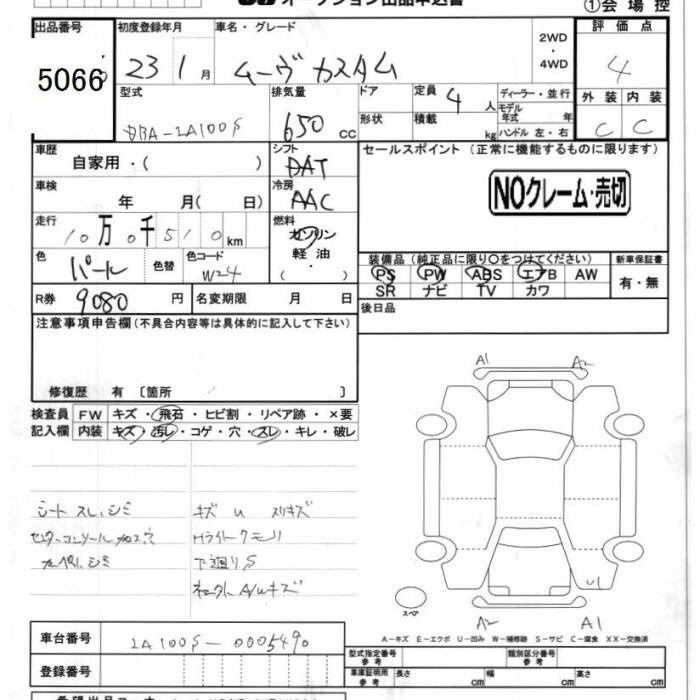 オークション出品申込書
①会場控
出品番号 初度登録年月 車名・グレード 2WD・4WD 評価点
5066 23 1月 ムーヴ カスタム 4
型式 排気量 ドア 定員 4人 ディーラー・並行 外装 内装
DBA-LA100S 650cc 形状 積載 kg モデル年式 年 ハンドル 左・右 C C
車歴 シフト セールスポイント(正常に機能するものに限ります)
自家用・( ) DAT
車検 冷房 NOクレーム・売切
年 月( 日) AAC
走行 燃料
10万0千510km ガソリン
色 パール 色替 色コード W24 軽油・( )
装備品(純正品に限り○をつけてください) 新車保証書
PS PW ABS エアB AW 有・無
SR ナビ TV カワ
R券 9080円 名変期限 月 日
後日品
注意事項申告欄(不具合内容等は具体的に記入して下さい)
修復歴 有 〔箇所 〕
A1 A2
検査員 FW キズ・飛石・ヒビ割・リペア跡・×要
記入欄 内装 キズ・汚レ・コゲ・穴・スレ・キレ・破レ
シート スレ、シミ キズ U スリキズ
センターコンソール加工穴 Hライトクモリ
カーペット シミ 下廻りS
A/Uキズ
U1
スペア
A2 A1
A-キズ E-エクボ U-凹み W-補修跡 S-サビ C-腐食 XX-交換済
車台番号 LA100S-0005490
型式指定番号 参考 類別区分番号 参考
登録番号
車庫証明用 参考 長さ cm 幅 cm 高さ cm
希望出品コーナー